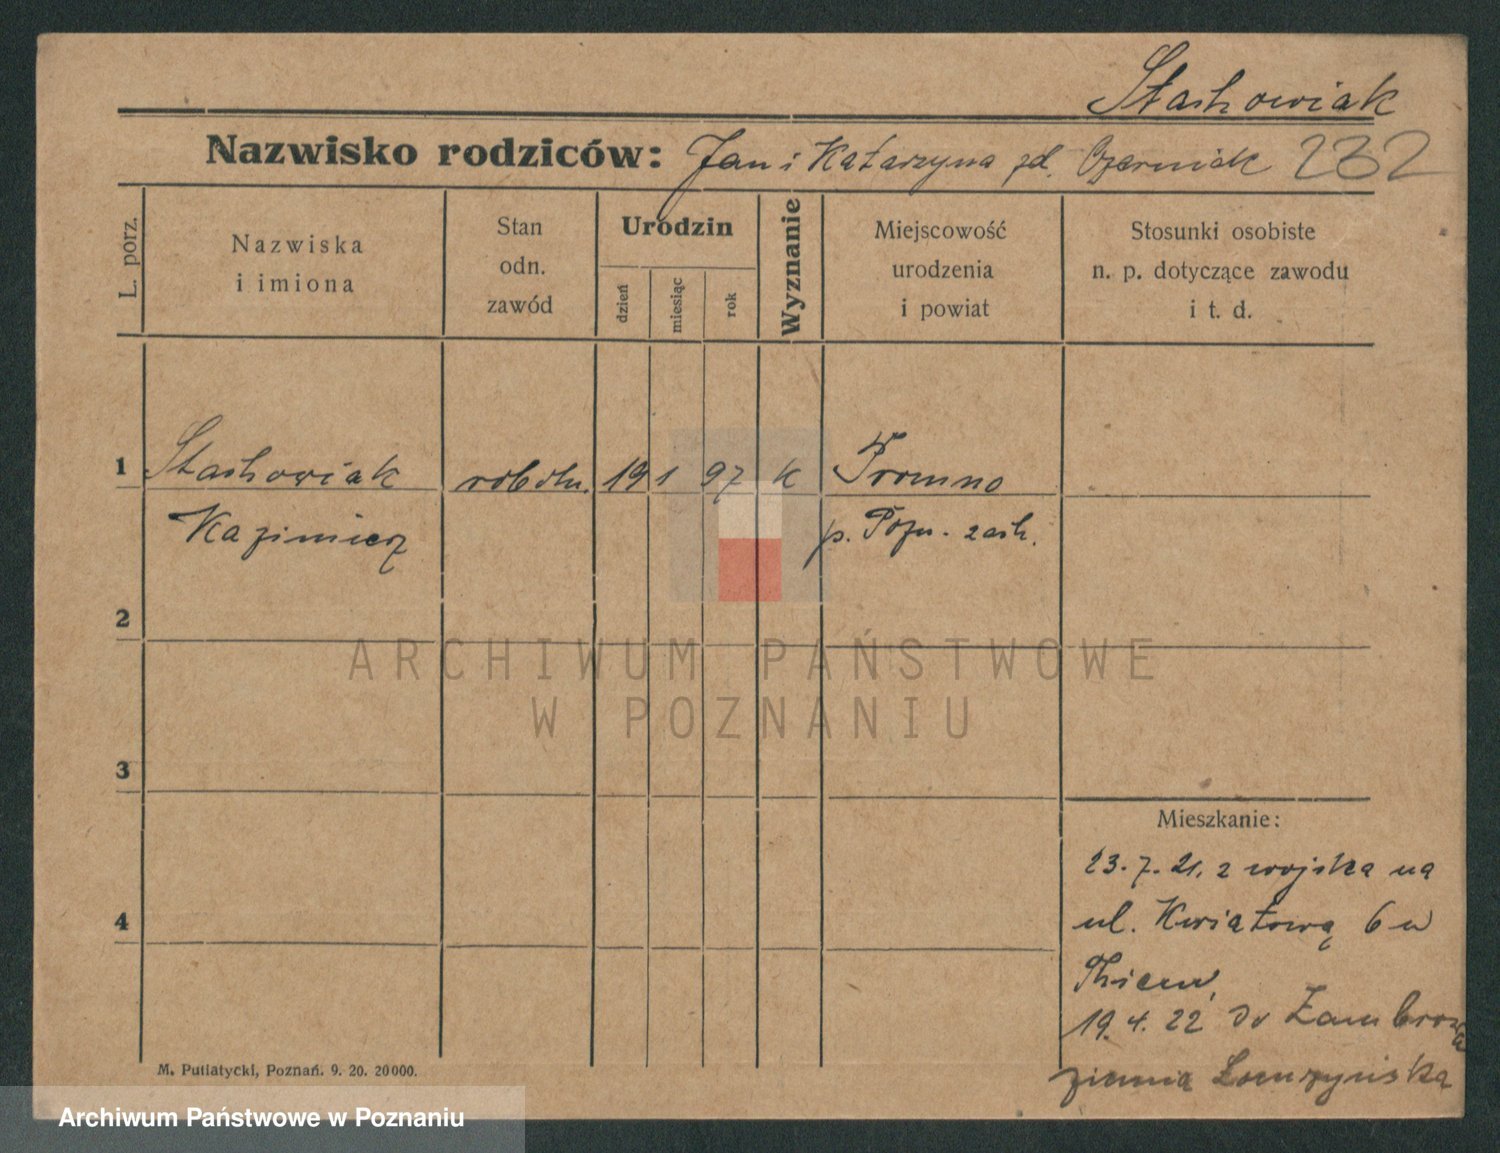 Stachowiak
Nazwisko rodziców: Jan i Katarzyna zd. Czerniak 232
L. porz.
Nazwiska
i imiona
Stan
odn.
zawód
Urodzin
dzień
miesiąc
rok
Wyznanie
Miejscowość
urodzenia
i powiat
Stosunki osobiste
n. p. dotyczące zawodu
i t. d.
1 Stachowiak 19 1 97 k Promno
Kazimierz p. Pozn. zach.
2
3
4
ARCHIWUM PAŃSTWOWE
W POZNANIU
Mieszkanie:
23.7.21. z wojska na
ul. Kwiatową 6 u
19.4.22 do
ziemia Łomżyńska
M. Putiatycki, Poznań. 9. 20. 20000.
Archiwum Państwowe w Poznaniu